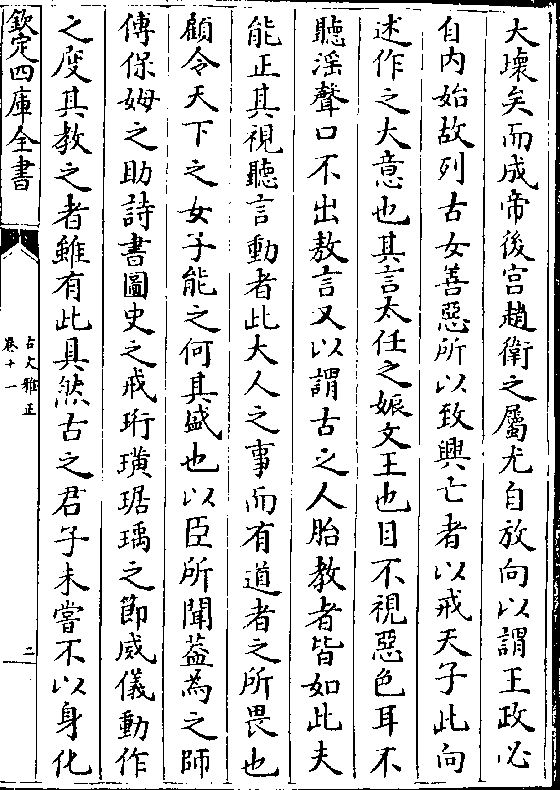 大壞矣而成帝後宫趙衛之屬尤自放向以謂王政必
自内始故列古女善惡所以致興亡者以戒天子此向
述作之大意也其言太任之娠文王也目不視惡色耳不
聽淫聲口不出敖言又以謂古之人胎教者皆如此夫
能正其視聽言動者此大人之事而有道者之所畏也
顧令天下之女子能之何其盛也以臣所聞葢為之師
傅保姆之助詩書圖史之戒珩璜琚瑀之節威儀動作
之度其教之者雖有此具然古之君子未嘗不以身化
欽定四庫全書
古文雅正
卷十一
二